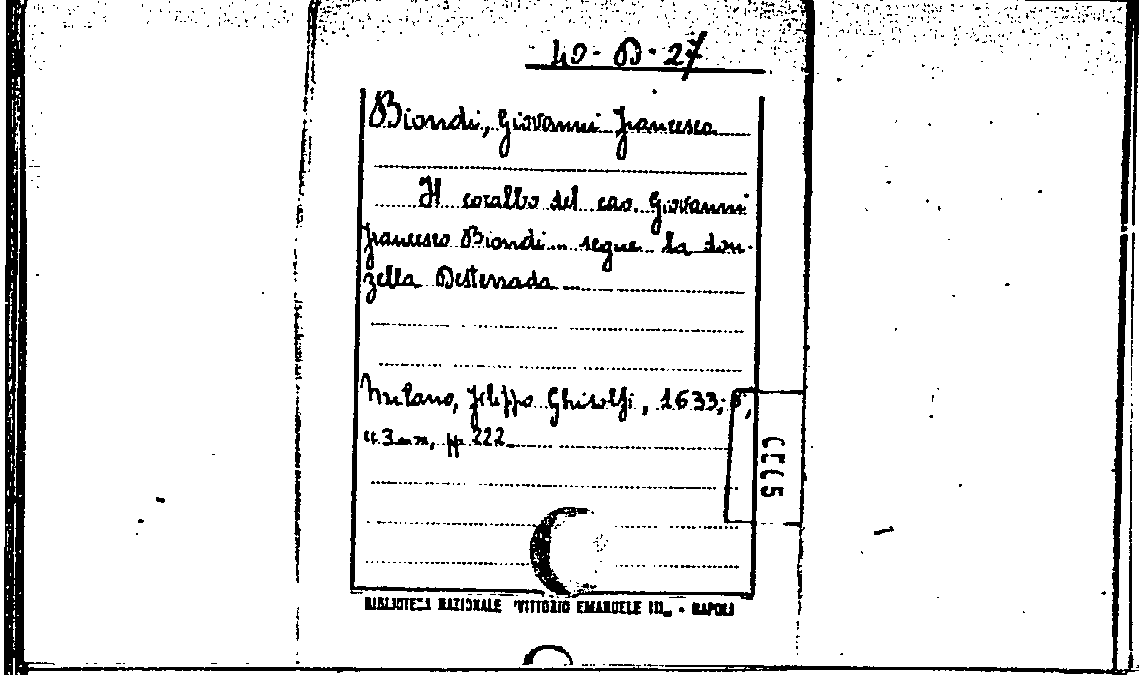 40-D-27
Biondi, Giovanni Francesco
Il coralbo del cav. Giovanni
Francesco Biondi... segue la don-
zella Desterrada...
Milano, Filippo Ghisolfi, 1633; 8,
cc. 3 nn, pp 222
BIBLIOTECA NAZIONALE "VITTORIO EMANUELE III" - NAPOLI